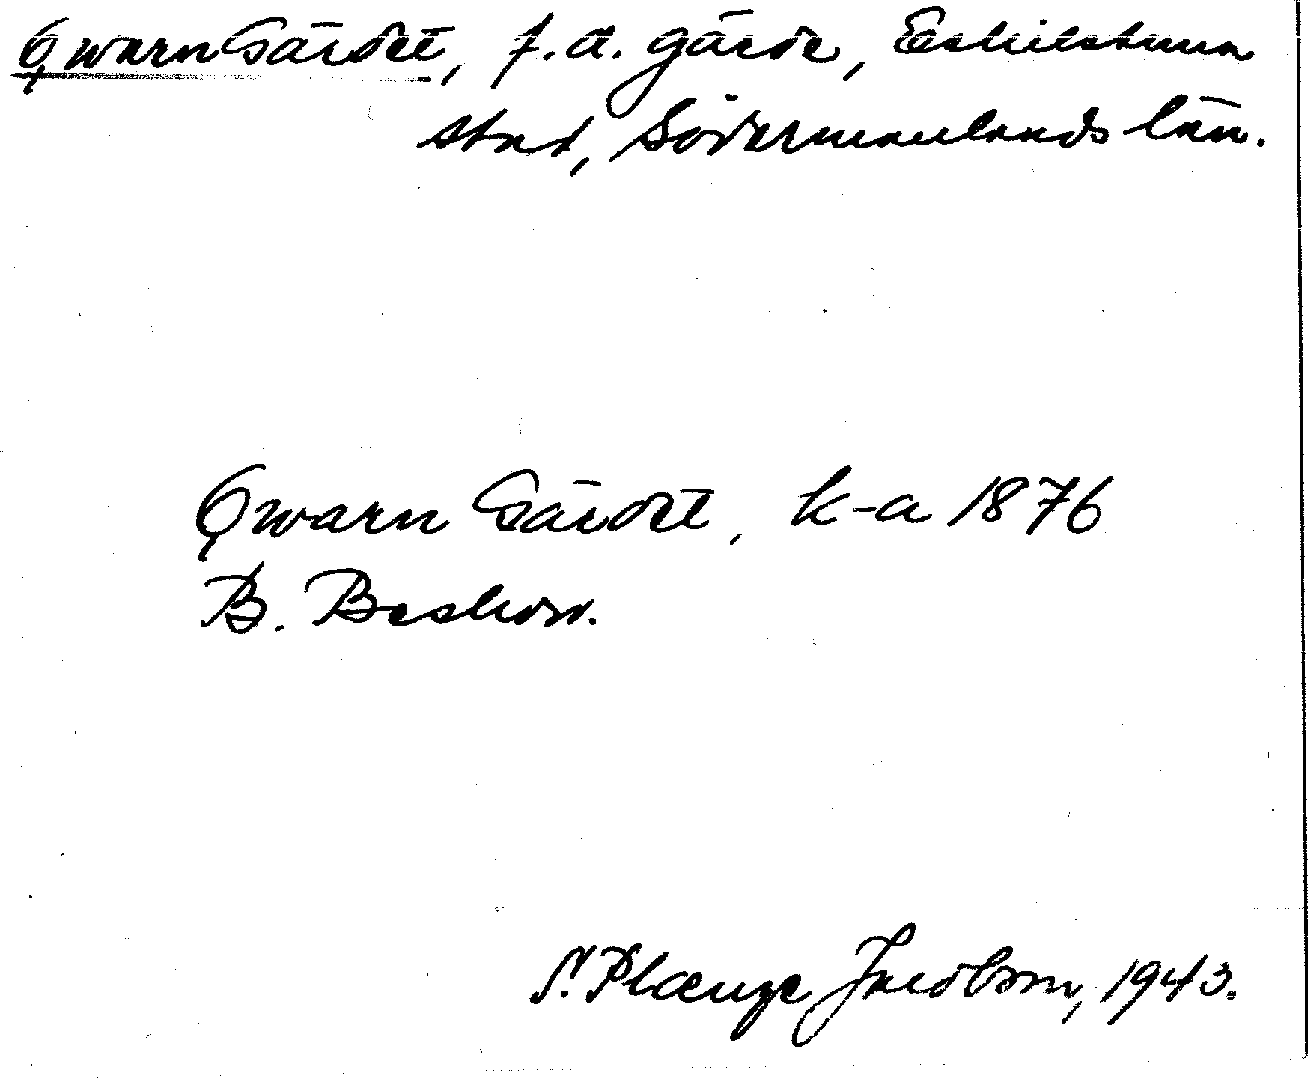 Qwarn Gärdet, f.d. gärde, Eskilstuna
stad, Södermanlands län.
Qwarn Gärdet, k-a 1876
B. Beskow.
S. Plænge Jacobson, 1943.